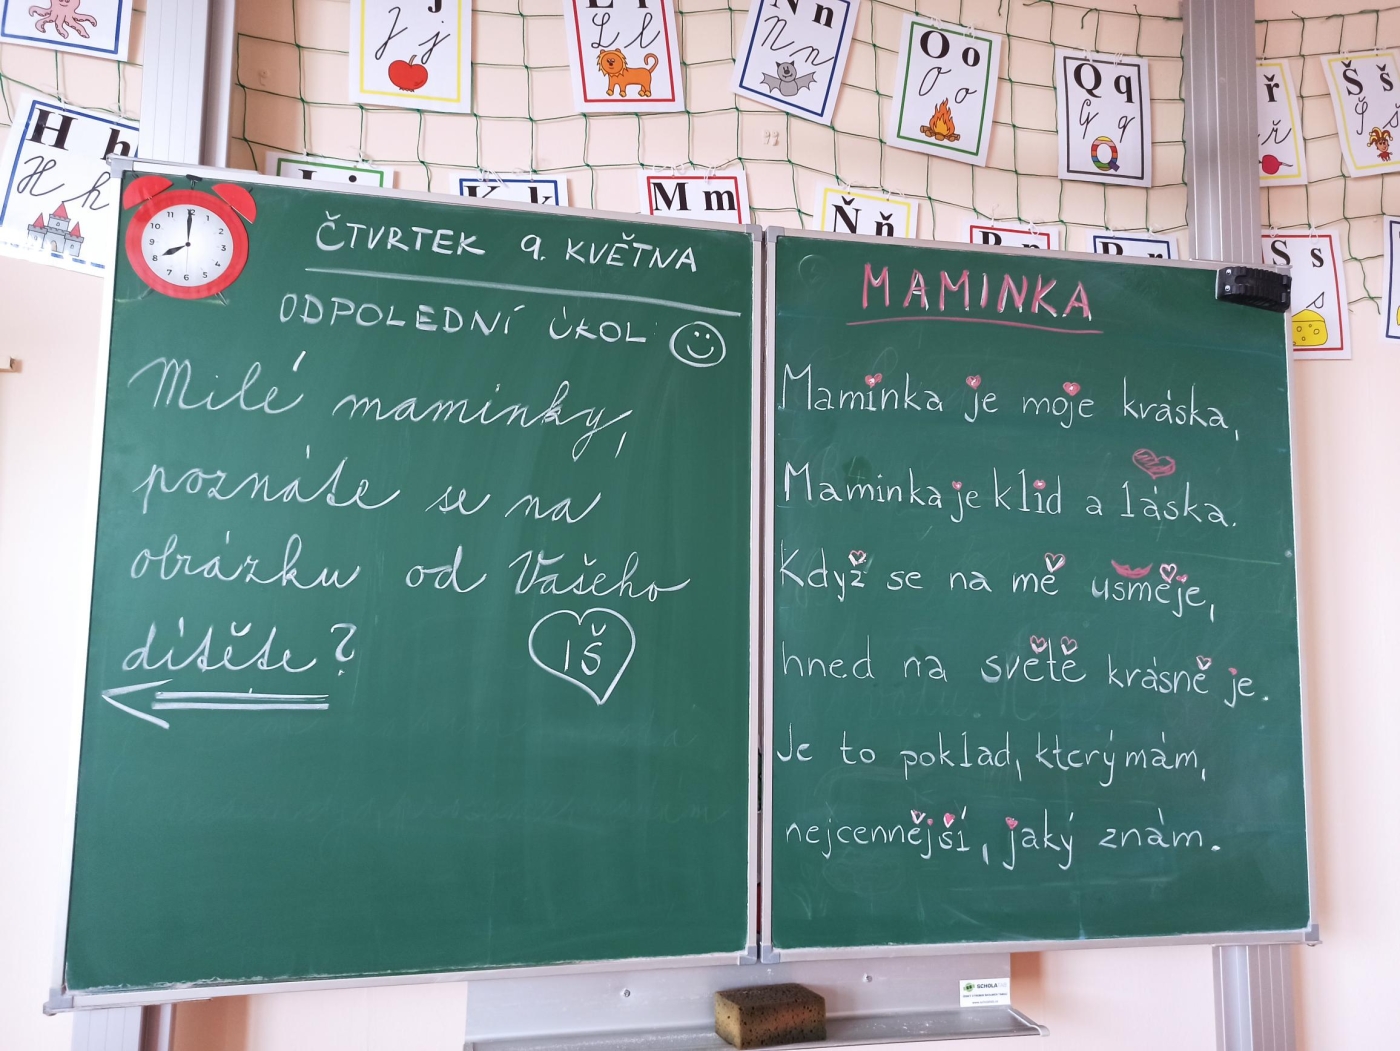 J j
J j
L l
N n
N n
O o
O o
Q q
Q q
ř
ř
Š š
Š š
H h
H h
K k
M m
Ň ň
S s
s
11 12 1
10 2
9 3
8 4
7 6 5
ČTVRTEK 9. KVĚTNA
ODPOLEDNÍ ÚKOL:
Milé maminky,
poznáte se na
obrázku od Vašeho
dítěte?
IŠ
MAMINKA
Maminka je moje kráska,
Maminka je klid a láska.
Když se na mě usměje,
hned na světě krásně je.
Je to poklad, který mám,
nejcennější, jaký znám.
SCHOLA